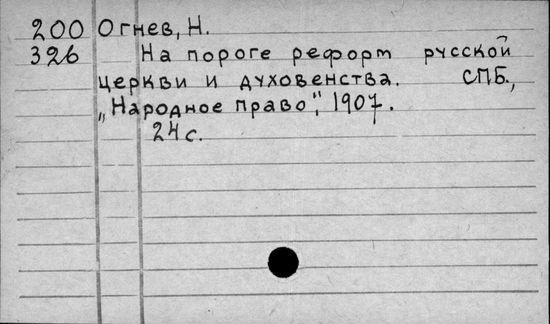 200 Огнев, Н.
326 На пороге рефорт русской
церкви и духовенства. СПБ.,
„Народное право", 1907.
24 с.